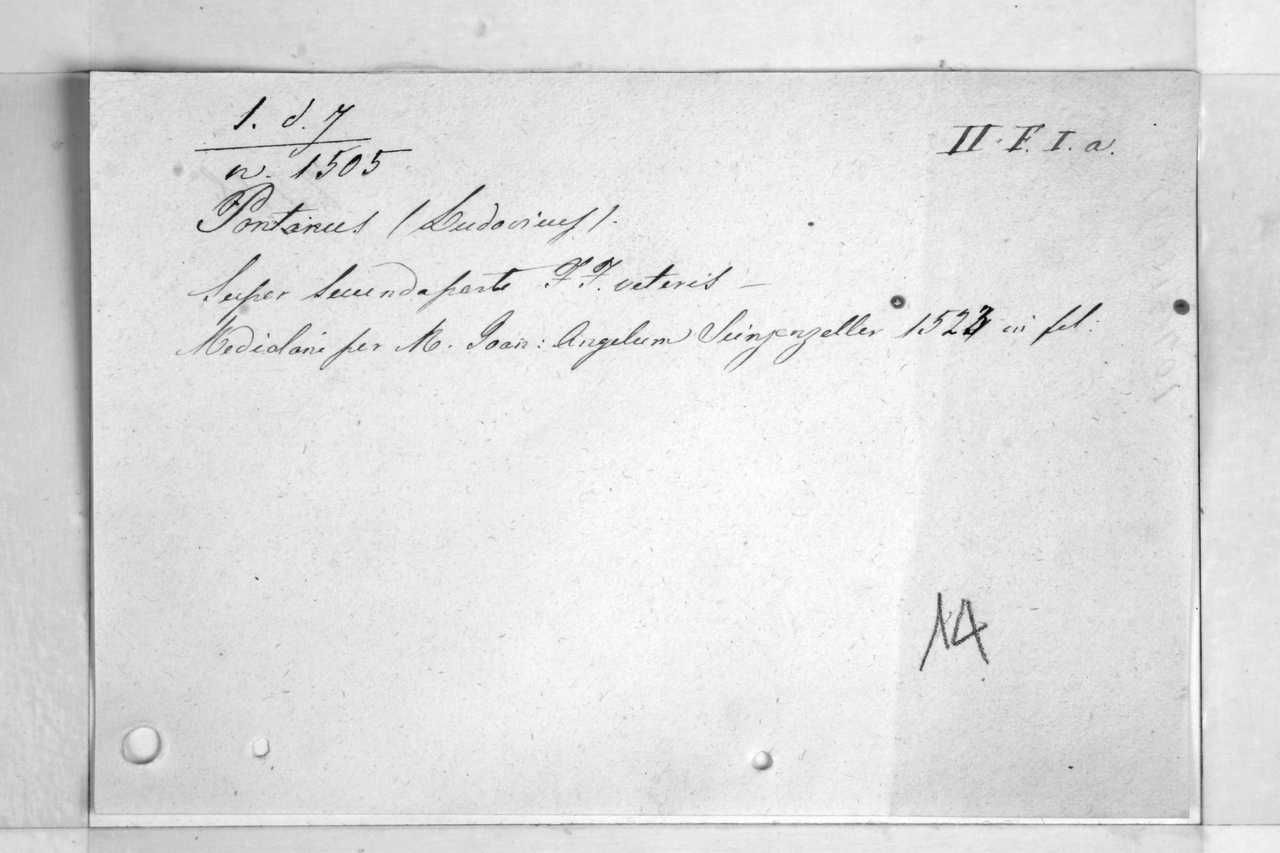 1. d. 7
II. F. I. a.
n. 1505
Pontanus (Ludovicus).
Super secunda parte FF. veteris –
Mediolani per M. Joan: Angelum Seinzenzeller 1523 in fol:
14